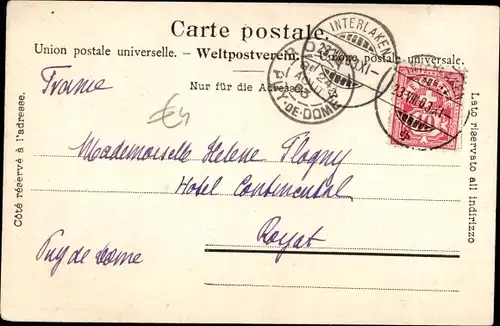 Carte postale.
Union postale universelle. - Weltpostverein. - Unione postale universale.
Nur für die Adresse.
Côté réservé à l'adresse.
Lato riservato all indirizzo
INTERLAKEN
PUY-DE-DOME
10
France
Mademoiselle Helene
Hotel Continental
Royat
Puy de dome